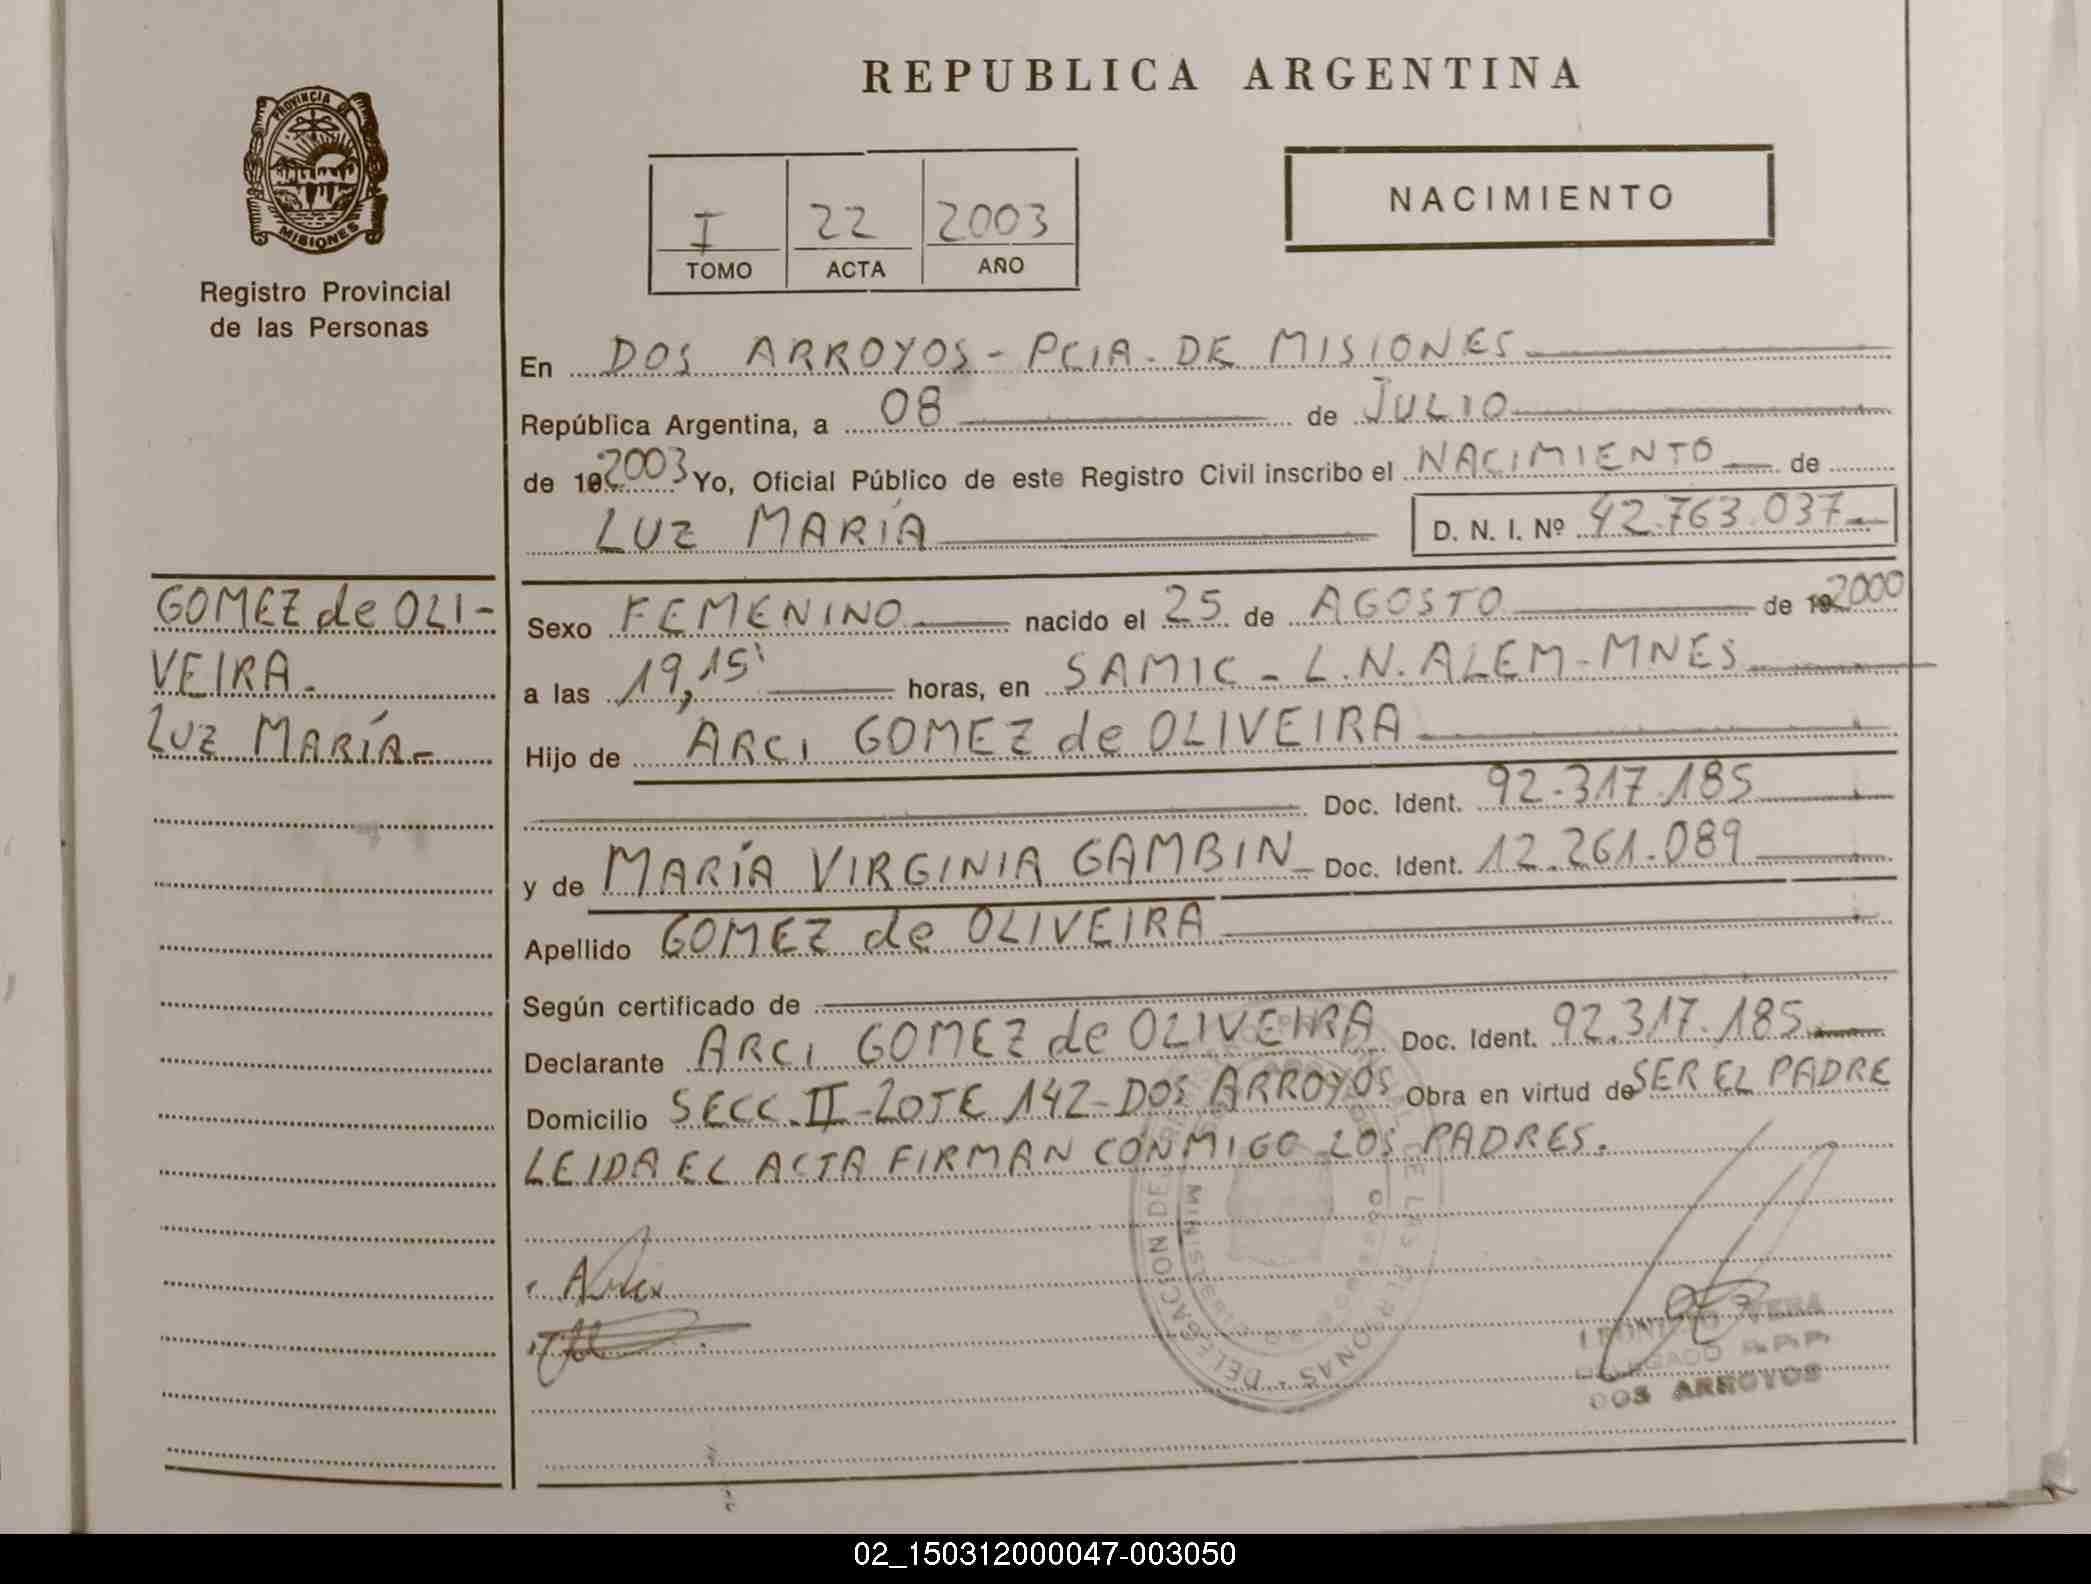 REPUBLICA ARGENTINA
PROVINCIA DE
MISIONES
Registro Provincial
de las Personas
I 22 2003
TOMO ACTA AÑO
NACIMIENTO
En DOS ARROYOS - PCIA. DE MISIONES
República Argentina, a 08 de JULIO
de 19 2003 Yo, Oficial Público de este Registro Civil inscribo el NACIMIENTO de
LUZ MARÍA D. N. I. Nº 42.763.037
GOMEZ de OLI-
VEIRA.
LUZ MARÍA-
Sexo FEMENINO nacido el 25 de AGOSTO de 19 2000
a las 19,15' horas, en SAMIC - L.N. ALEM - MNES
Hijo de ARCI GOMEZ de OLIVEIRA
Doc. Ident. 92.317.185
y de MARÍA VIRGINIA GAMBIN Doc. Ident. 12.261.089
Apellido GOMEZ de OLIVEIRA
Según certificado de
Declarante ARCI GOMEZ de OLIVEIRA Doc. Ident. 92.317.185
Domicilio SECC. II - LOTE 142 - DOS ARROYOS Obra en virtud de SER EL PADRE
LEIDA EL ACTA FIRMAN CONMIGO LOS PADRES.
VERA
DELEGADO R.P.P.
DOS ARROYOS
02_150312000047-003050